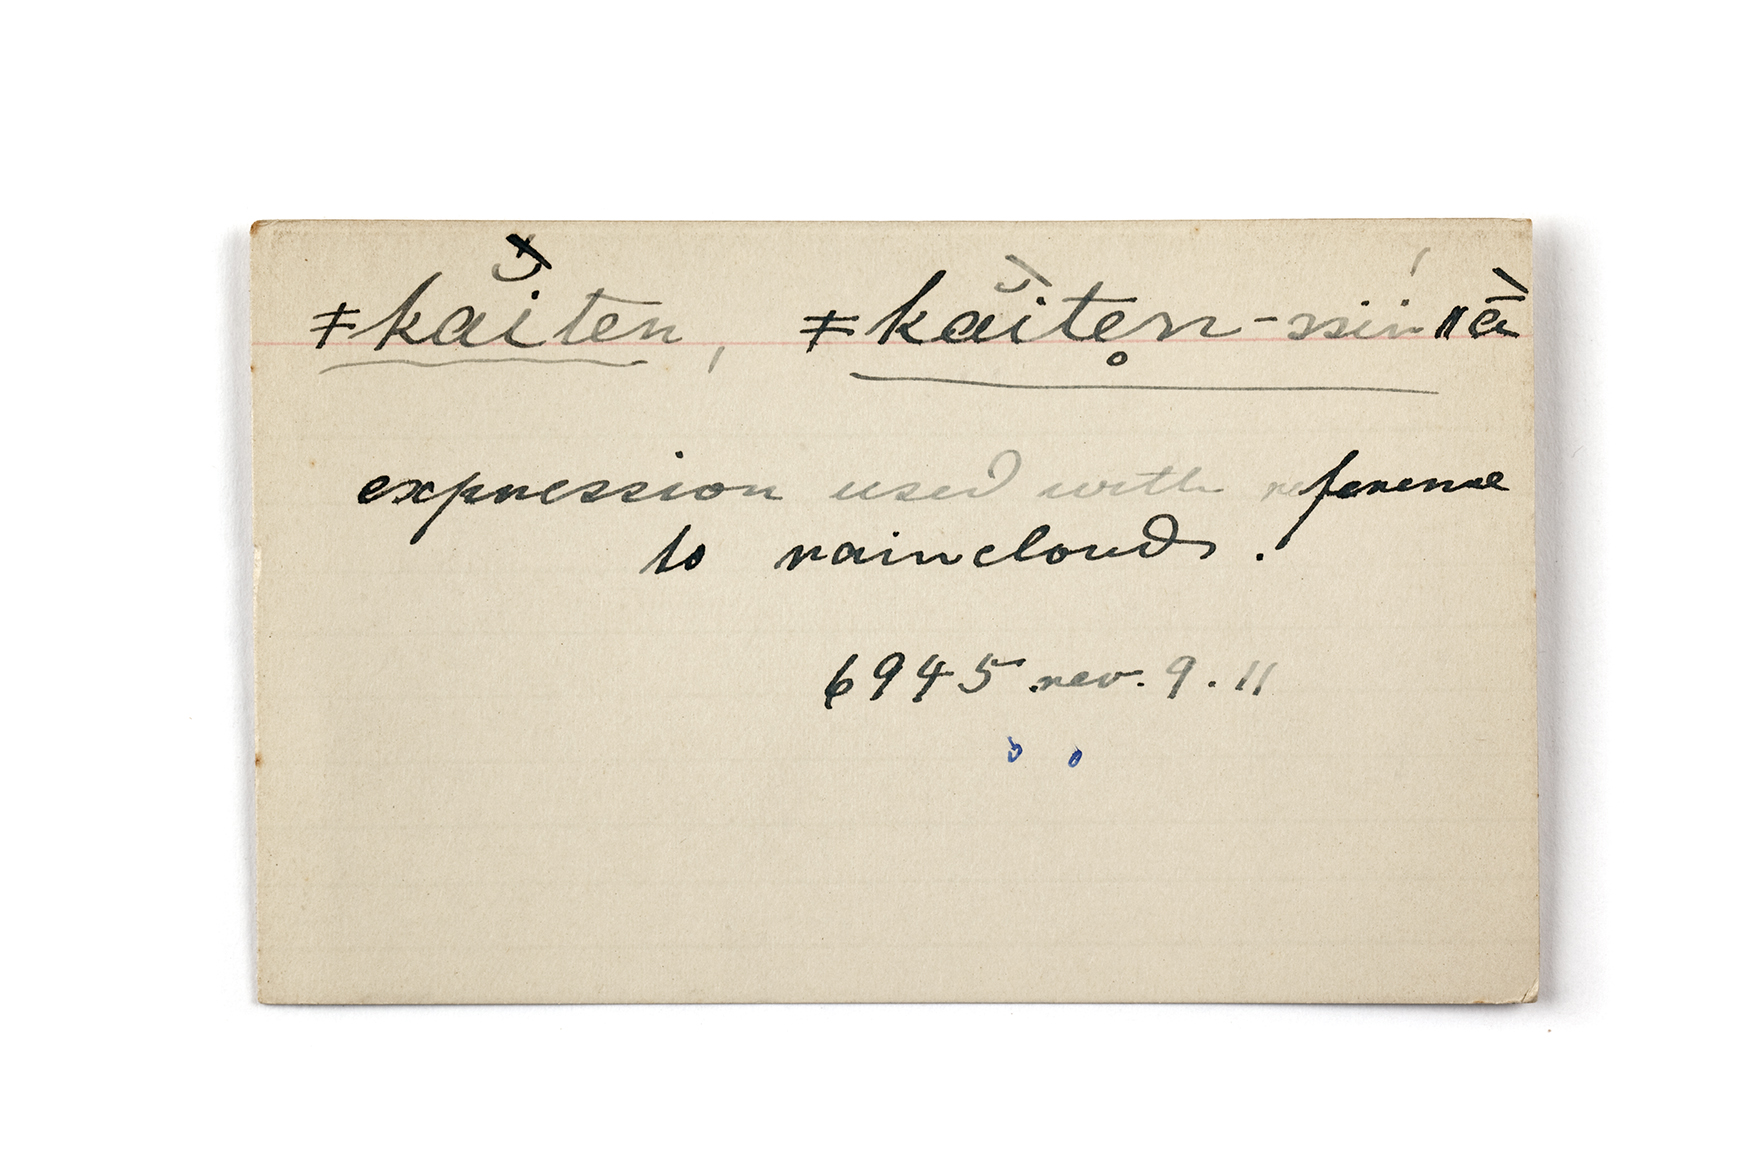 ǂkăiten, ǂkăitẹn-ssin ǁā̀
expression used with reference
to rainclouds.
6945 rev. 9.11